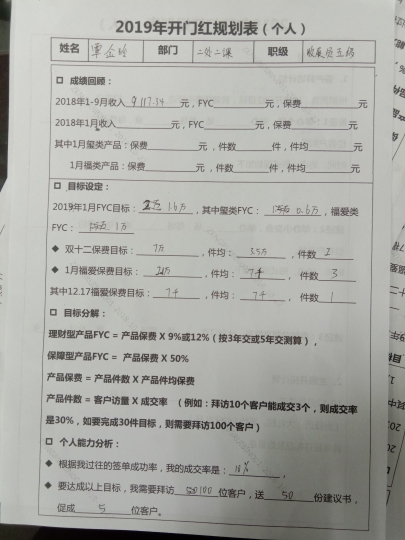 2019年开门红规划表（个人）
姓名 覃金玲 部门 二处二课 职级
□ 成绩回顾：
2018年1-9月收入 9117.34 元，FYC 元，保费 元
2018年1月收入 元，FYC 元，保费 元
其中1月玺类产品：保费 元，件数 件，件均 元
1月福类产品：保费 元，件数 件，件均 元
□ 目标设定：
2019年1月FYC目标： 1.6万 ，其中玺类FYC： 0.6万 ，福爱类
FYC： 1万
◆ 双十二保费目标： 7万 ，件均： 3.5万 ，件数 2
◆ 1月福爱保费目标： 2万 ，件均： 7千 ，件数 3
其中12.17福爱保费目标： 7千 ，件均： 7千 件数 1
□ 目标分解：
理财型产品FYC = 产品保费 X 9%或12%（按3年交或5年交测算），
保障型产品FYC = 产品保费 X 50%
产品保费 = 产品件数 X 产品件均保费
产品件数 = 客户访量 X 成交率 （例如：拜访10个客户能成交3个，则成交率
是30%，如要完成30件目标，则需要拜访100个客户）
□ 个人能力分析：
◆ 根据我过往的签单成功率，我的成交率是： ，
◆ 要达成以上目标，我需要拜访 100 位客户，送 50 份建议书，
促成 5 位客户。